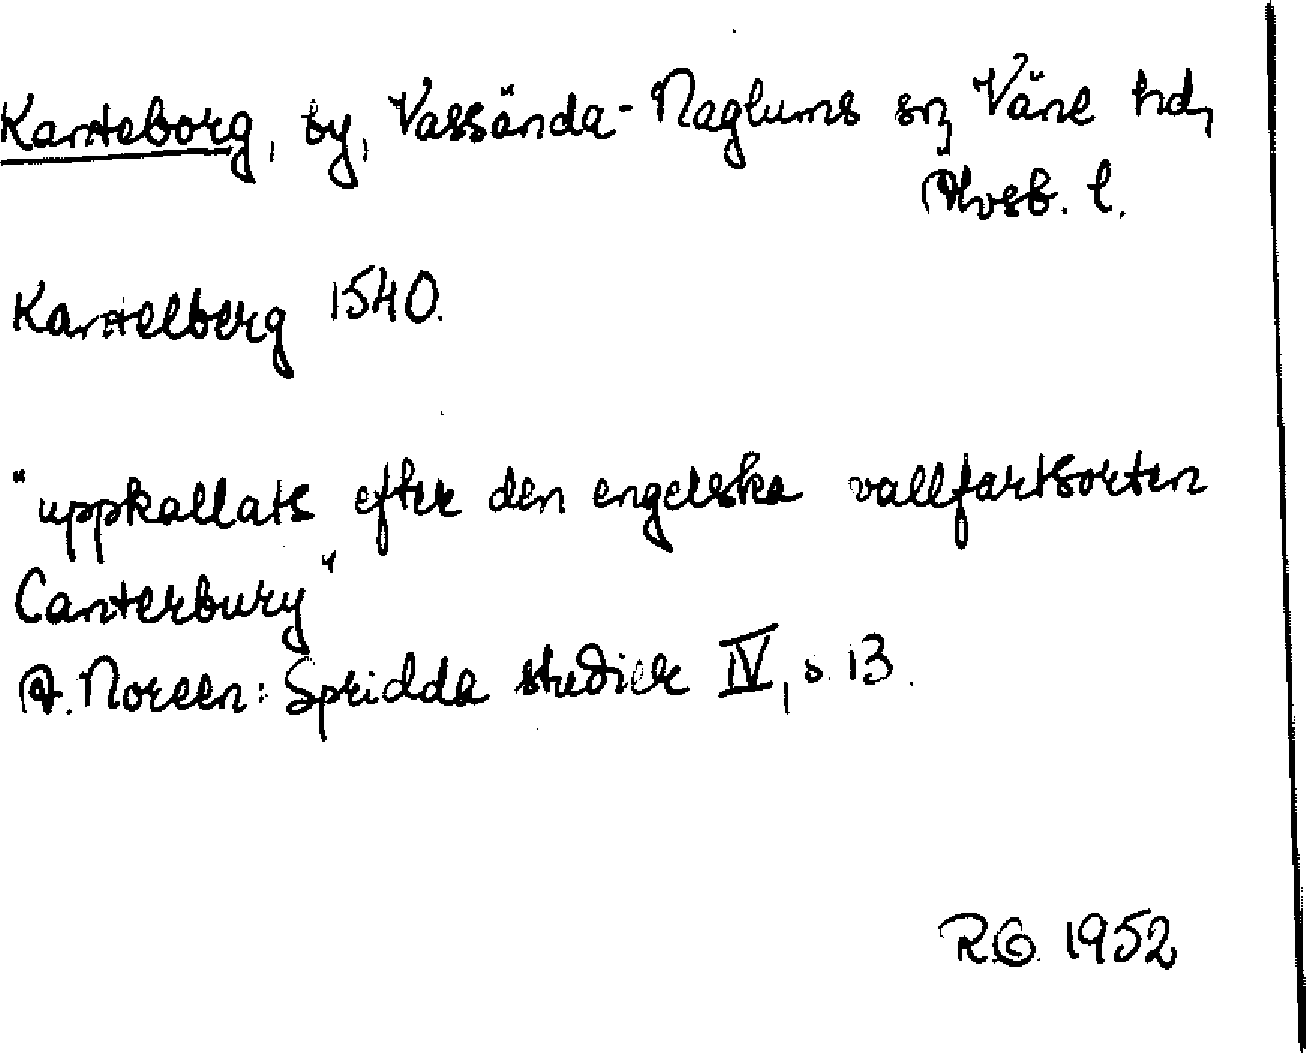 Kanteborg, by, Vassända-Naglums sn, Väne hd,
Älvsb. l.
Kantelberg 1540.
"uppkallats efter den engelska vallfartsorten
Canterbury"
A. Noreen: Spridda studier IV, s. 13.
RG. 1952